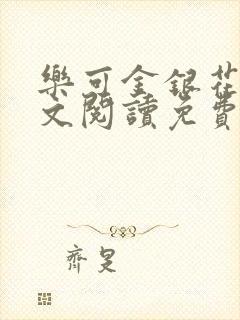 樂可金銀花
文閱讀免費
齊是